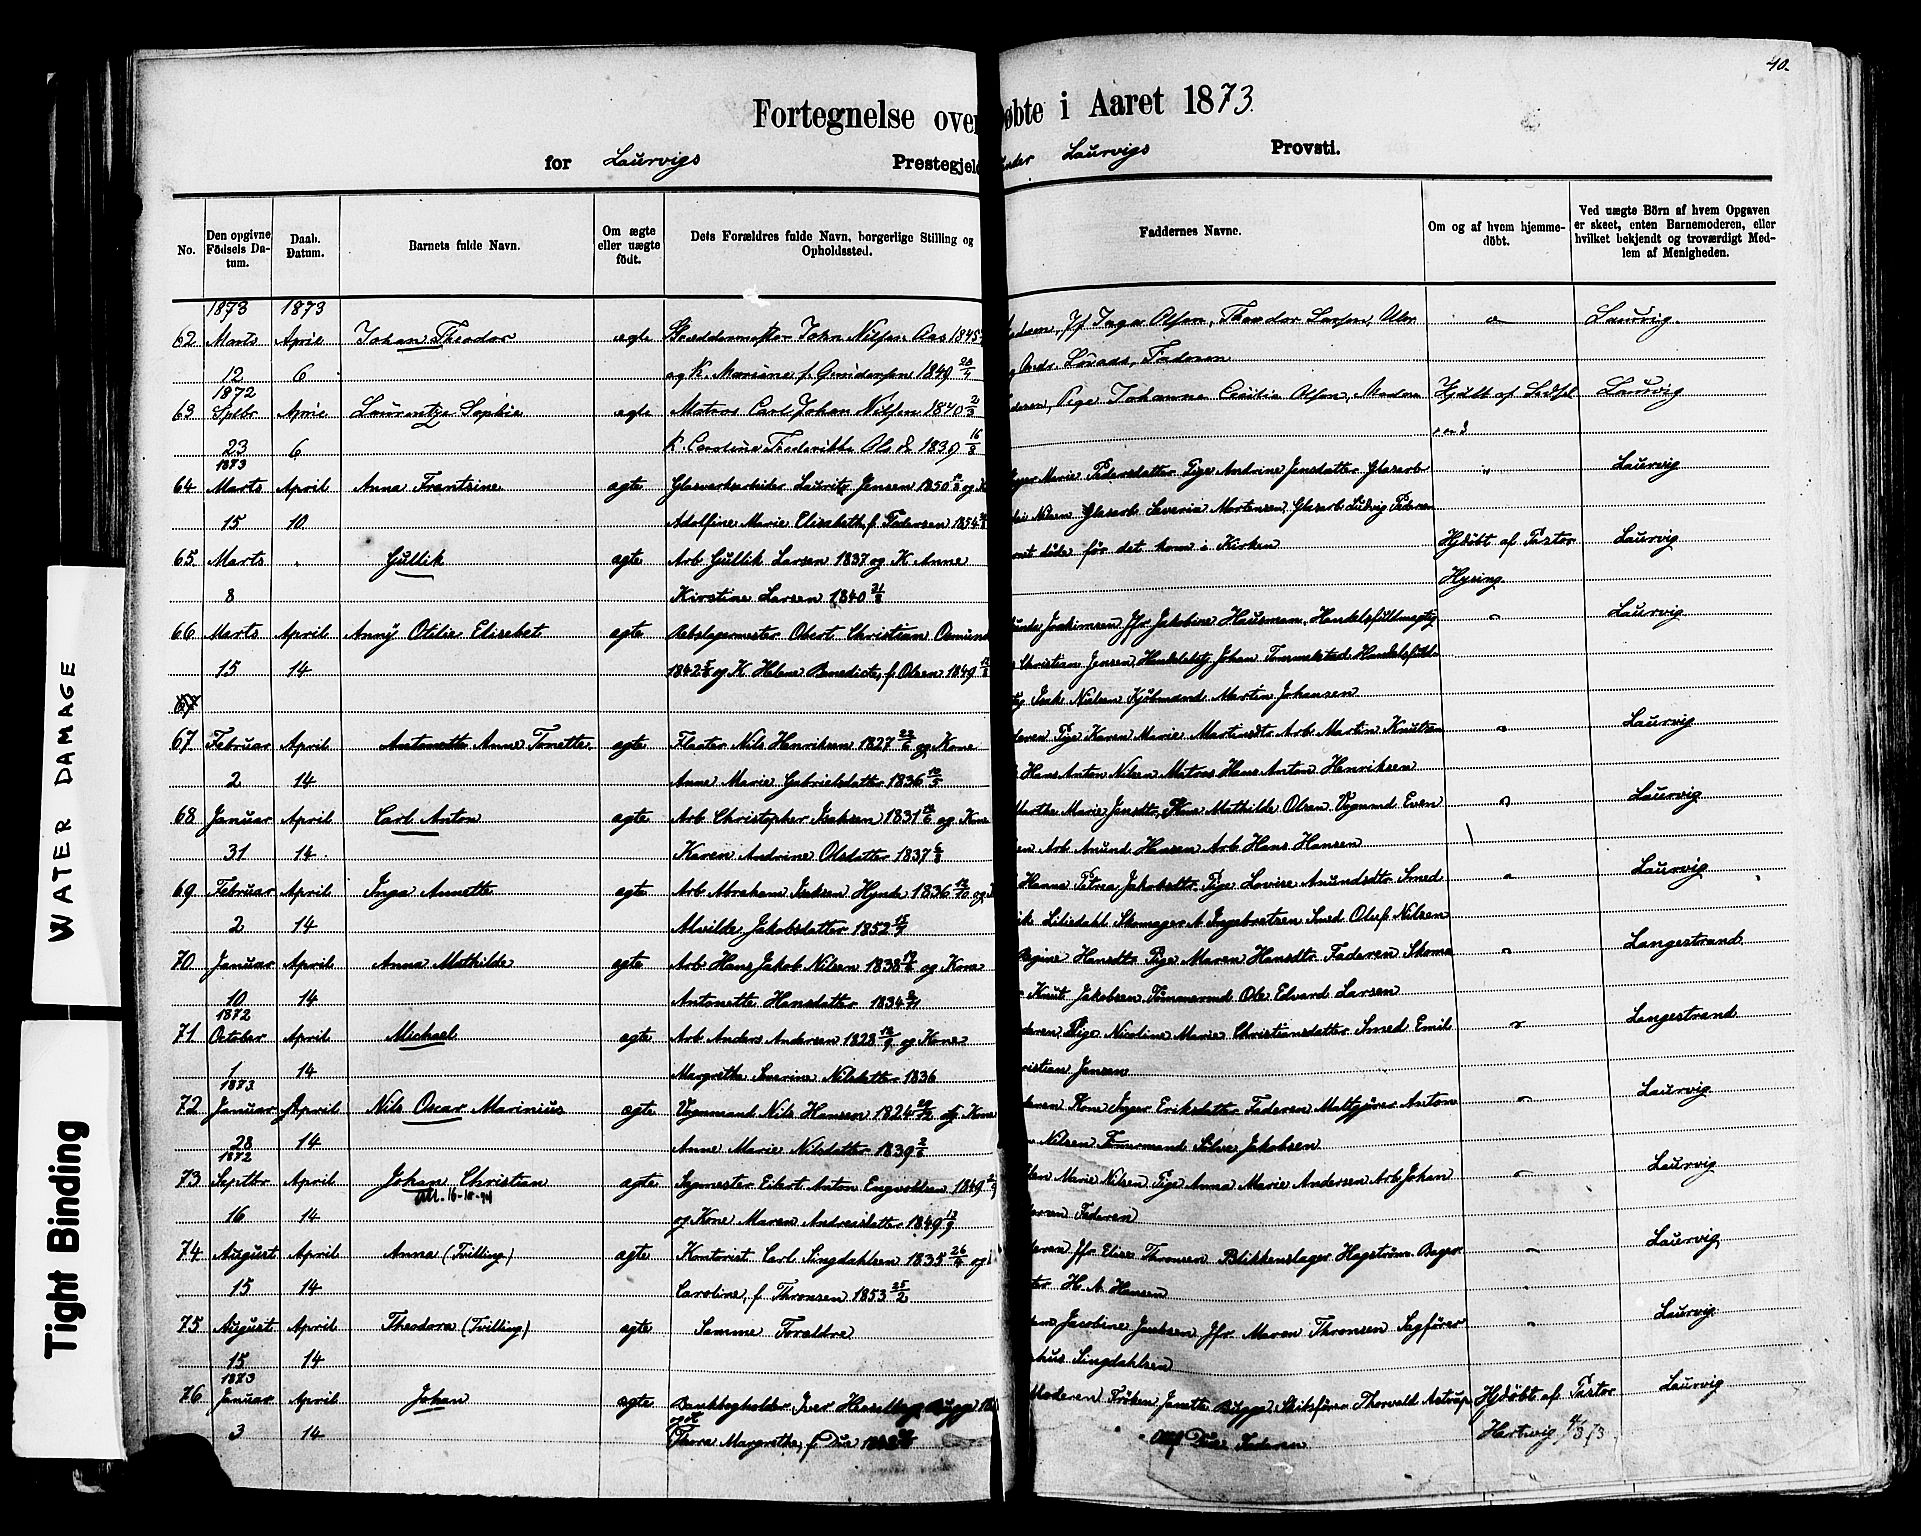 40.
Fortegnelse over Døbte i Aaret 1873.
for Laurvigs Prestegjeld under Laurvigs Provsti.
No.
Den opgivne Födsels Datum.
Daab. Datum.
Barnets fulde Navn.
Om ægte eller uægte födt.
Dets Forældres fulde Navn, borgerlige Stilling og Opholdssted.
Faddernes Navne.
Om og af hvem hjemmedöbt.
Ved uægte Börn af hvem Opgaven er skeet, enten Barnemoderen, eller hvilket bekjendt og troværdigt Medlem af Menigheden.
1873 1873
62 Marts April Johan Theodor ægte John Nilsen Aas 1845 Inger Olsen, Theodor Larsen, Laurvig.
12 6 og K. Mariane f. 1849 Faderen
1872
63 Septbr April Laurentze Sophie ægte Matros Carl Johan Nilsen 1840 2/3 Pige Johanne Cecilia Olsen, Laurvig
23 6 K. Caroline Frederikke Olsd. 1839 16/8
1873
64 Marts April Anna Frantsine ægte Glasverksarbeider Lauritz Jensen 1850 og K Marie Pedersdatter Pige Andrine Jensdatter Glasarb Laurvig
15 10 Adolfine Marie Elisabeth f. Pedersen 1854 Nilsen Glasarb Severin Mortensen, Glasarb Ludvig Pedersen
65 Marts " Gullik ægte Arb Gullik Larsen 1837 og K Anne døde för det kom i Kirken Hjdöbt af Pastor Laurvig
8 Kirstine Larsen 1840 21/8 Hysing
66 Marts April Anny Otilie Elisebet ægte Rebslagermester Obert Christian Osmund Joakimsen Jfr Jakobine Hausman, Handelsfuldmægtig " Laurvig
15 14 1842 og K Helene Benedicte, f. Olsen 1849 Christian Jensen, Handelsbtj Johan Tommelstad Handelsfuld
67 Isak Nielsen Kjöbmand Martin Johansen
67 Februar April Antonette Anne Tonette ægte Flaater Nils Henriksen 1827 og Kone Pige Karen Marie Martinsdtr Arb Martin Knutsen " Laurvig
2 14 Anne Marie Gabrielsdatter 1836 Hans Anton Nilsen Matros Hans Anton Henriksen
68 Januar April Carl Anton ægte Arb Christopher Isaksen 1831 og Kone Marthe Marie Jensdtr, Kone Mathilde Olsen Vognmd Even " Laurvig
31 14. Karen Andrine Olsdatter 1837 Arb Anund Hansen Arb Hans Hansen
69 Februar April Inga Annette ægte Arb Abraham Isaksen 1836 og Hanna Petrea Jakobsdtr Pige Lovise Anundsdtr Smed " Laurvig
2 14 Alvilde Jakobsdatter 1852 Lilisdahl Skomager A Ingebretsen Smed Oluf Nilsen
70 Januar April Anna Mathilde ægte Arb Hans Jakob Nilsen 1838 og Kone Regine Hansdtr Pige Maren Hansdtr Faderen Skoma " Langestrand
10 14 Antonette Hansdatter 1834 Knut Jakobsen Tömmermd Ole Edvard Larsen
1872
71 October April Michael ægte Arb Anders Andersen 1828 og Kone Pige Nicoline Marie Christiansdatter Smed Emil " Langestrand
1 14 Margrethe Severine Nilsdatter 1836 Jensen
1873
72 Januar April Nils Oscar Marinius ægte Vognmand Nils Hansen 1824 og Kone Kone Inger Eriksdatter Faderen Anton " Laurvig
28 14 Anne Marie Nilsdatter 1839 Nilsen Jakobsen
1872
73 Septbr April Johan Christian ægte Eilert Anton Engvoldsen 1849 Marie Nilsen Pige Anna Marie Andersen Arb Johan " Laurvig
att. 16-10-94
16 14 og Kone Maren Andreasdatter 1849 13/9 Faderen
74 August April Anna (Tvilling) ægte Kontorist Carl Singdahlsen 1835 26/4 og Jfr Elise Thronsen Blikkenslager Hagström Bager " Laurvig
15 14 Caroline, f. Thronsen 1853 25/2 H A Hansen
75 August April Theodora (Tvilling) ægte Samme Foraldre Jacobine Jfr Maren Thronsen Sagförer " Laurvig
15 14 Singdahlsen
1873
76 Januar April Johan ægte Bankbogholder Iver Bugge Moderen Fröken Janette Bugge, Thorvald Astrup Hjdöbt af Pastor Laurvig
3 14 Thora Margrethe, f. Due Oluf Due Faderen Hartwig
WATER DAMAGE
Tight Binding